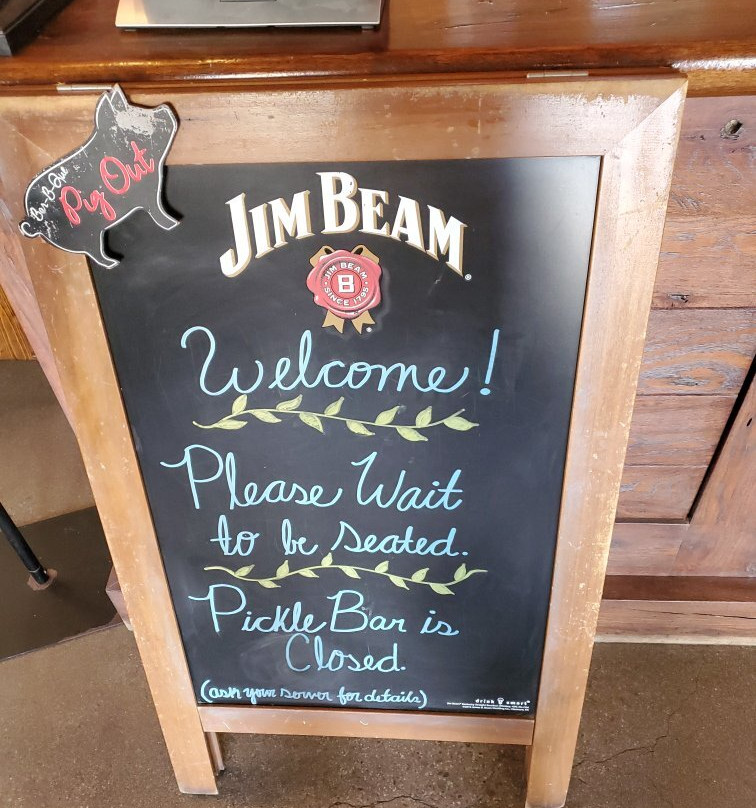 Bar-B-Que
Pig Out
JIM BEAM
JIM BEAM
B
SINCE 1795
Welcome!
Please Wait
to be seated.
Pickle Bar is
Closed.
(ask your server for details)
drink smart